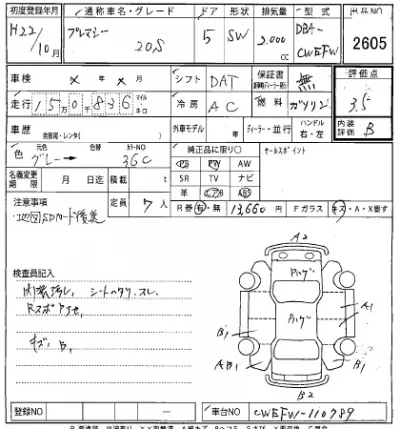 初度登録年月 通称車名・グレード ドア 形状 排気量 型式 出品NO
H22/10月 プレマシー 20S 5 SW 2,000cc DBA-CWEFW 2605
車検 × 年 × 月 シフト DAT 保証書 無 評価点
走行 15万0千836 マイル キロ 冷房 AC 燃料 ガソリン 3.5
車歴 自家用・レンタ( ) 外車モデル 年 ディーラー・並行 ハンドル 右・左 内装評価 B
色 元色 グレー → 色替 カラーNO 36C 純正品に限り○ セールスポイント
PS PW AW
名義変更期限 月 日迄 積載量 t SR TV ナビ
革 エアB ABS
注意事項 定員 7人 R券 有・無 13,660円 Fガラス キズ・A・X要す
・地図SDカード後送
A2
検査員記入 Aハゲ
内装汚れ、シートヘタリ・スレ
Rスポ
Aハゲ A1
キズ、B1 B1
AB1 B1
B2
登録NO ― 車台NO CWEFW-110789